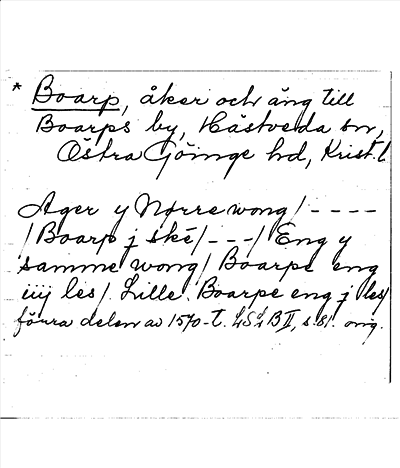 * Boarp, åker och äng till
Boarps by, Hästveda sn,
Östra Göinge hd, Krist. l
Ager y Nørre wong/ - - - -
/ Boarp j ské/ - - - / Eng y
samme wong/ Boarpe eng
iiij les/. Lille Boarpe eng j les/
förra delen av 1570-t. LSLB II, s. 81. omg.